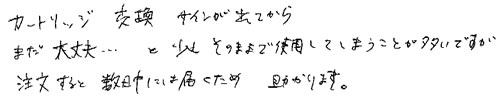 カートリッジ 交換 サインが出てから
まだ大丈夫… と少しそのままで使用してしまうことが多いですが
注文すると数日中には届くため 助かります。